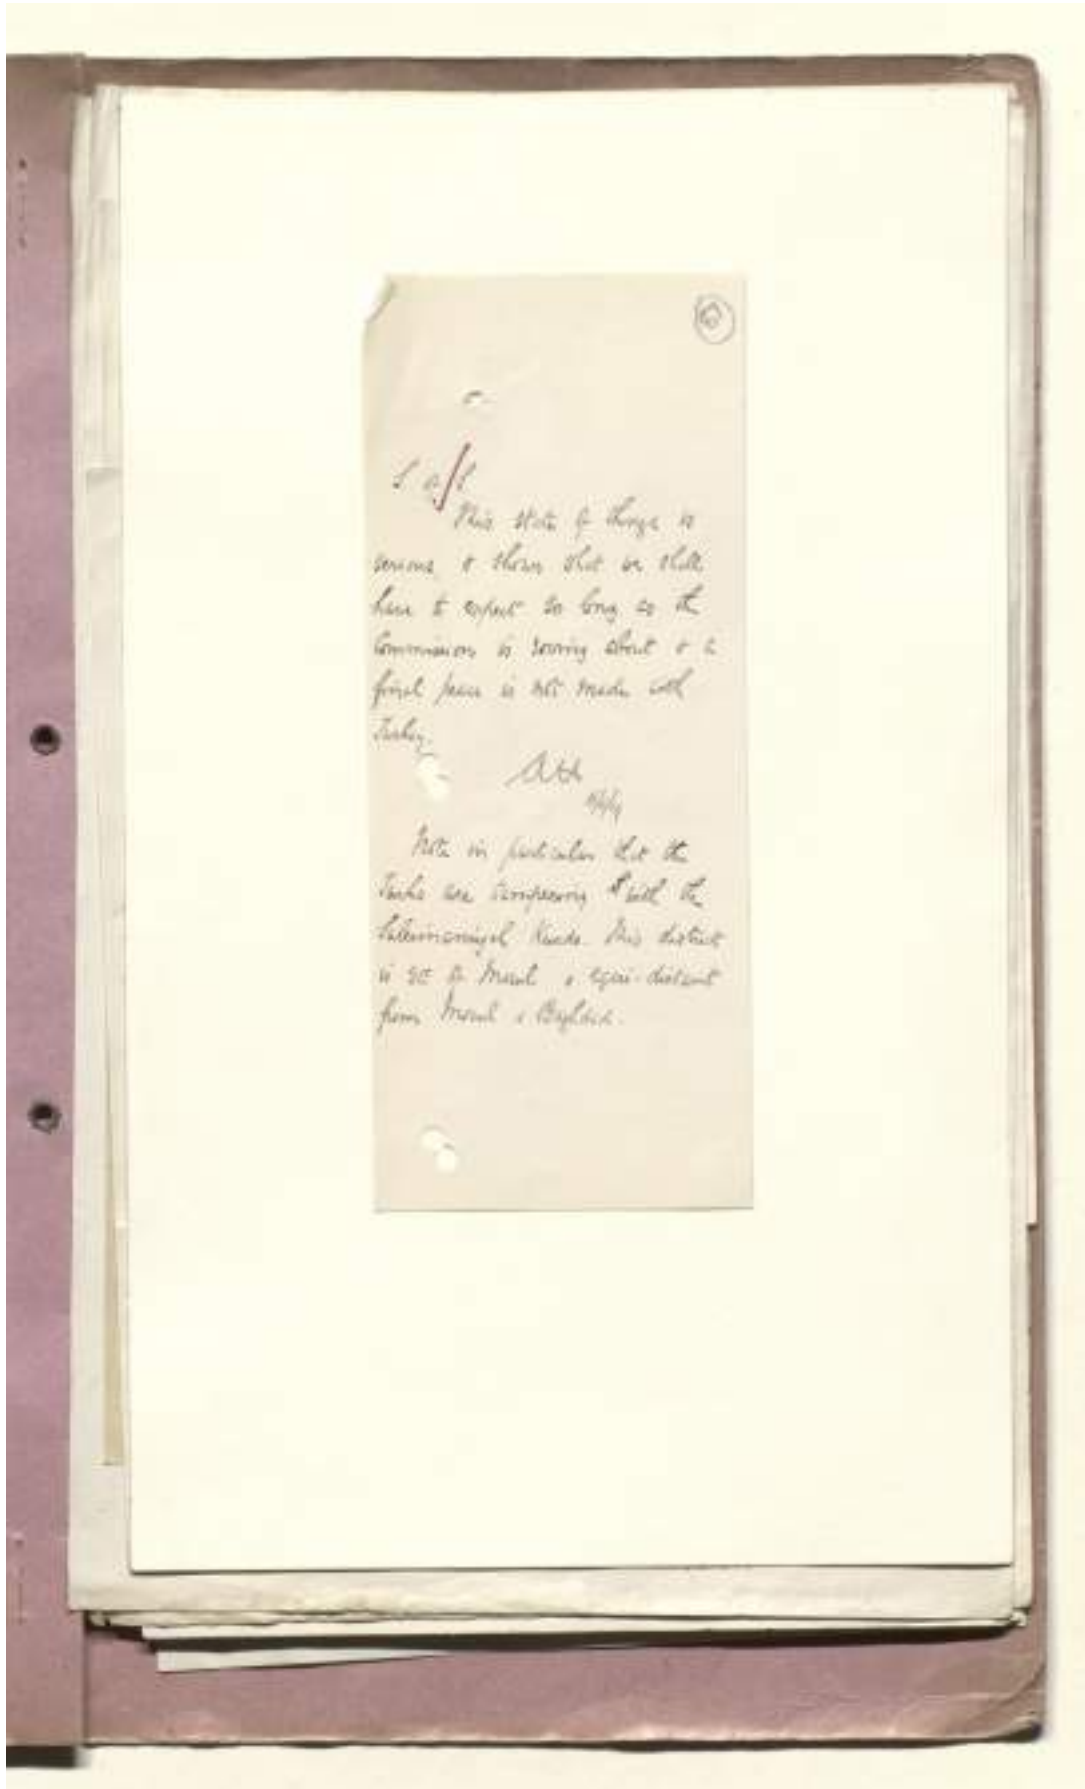 S of S
This state of things is
serious, & shows what we shall
have to expect so long as the
Commission is roving about & a
final peace is not made with
Turkey.
Note in particular that the
Turks are tampering with the
Suleimaniyeh Kurds. This district
is SE of Mosul & equi-distant
from Mosul & Baghdad.